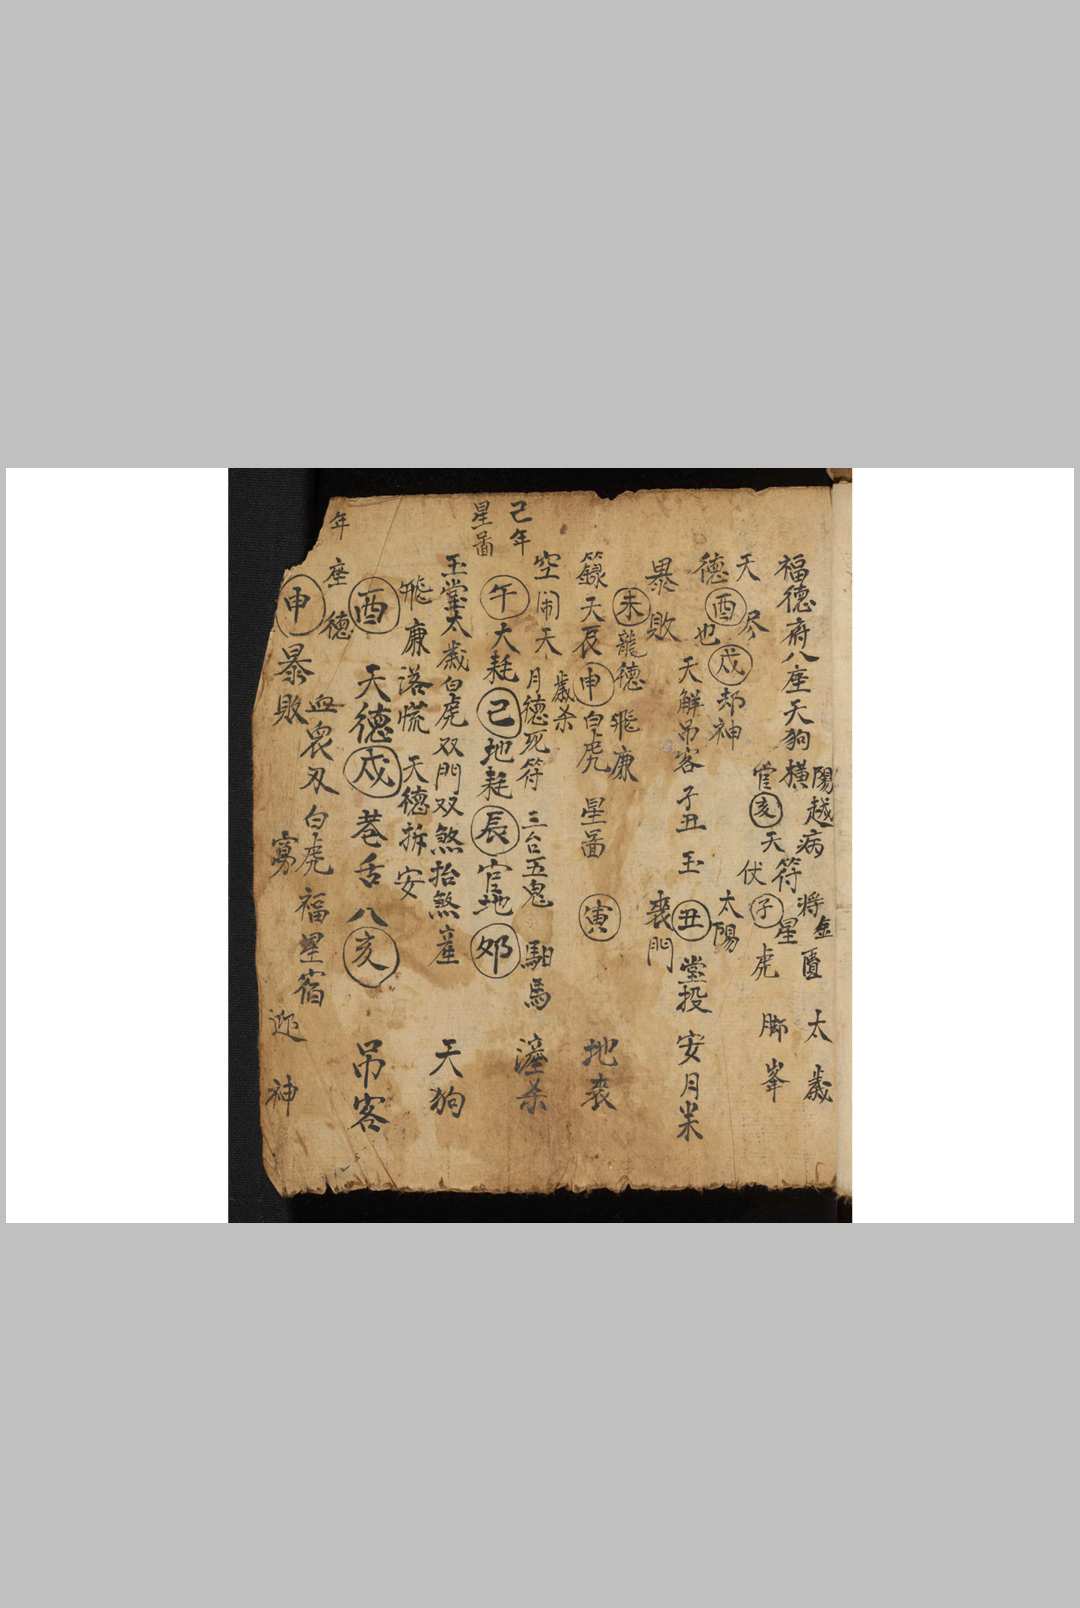 福德府八座天狗橫
陽越病
將金匱 太歲
符星
官亥天伏子虎 腳峯
天尽戌却神
太陽
德酉也
天解吊客子丑玉丑堂投安月米
暴敗
喪門
未龍德飛廉
籙天辰申白虎星啚寅地喪
歲杀
空闹天月德死符三台五鬼馹馬 杀
己年
星啚
午大耗己地耗辰官地夘
玉堂太歲白虎双門双煞抬煞産天狗
飛廉落慌天德拆安
酉天德戌巷舌八亥吊客
年
座德
血衆刃白虎福星宿
申暴敗
迎神